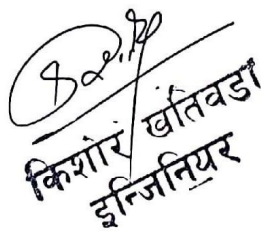 किशोर खतिवडा
इन्जिनियर